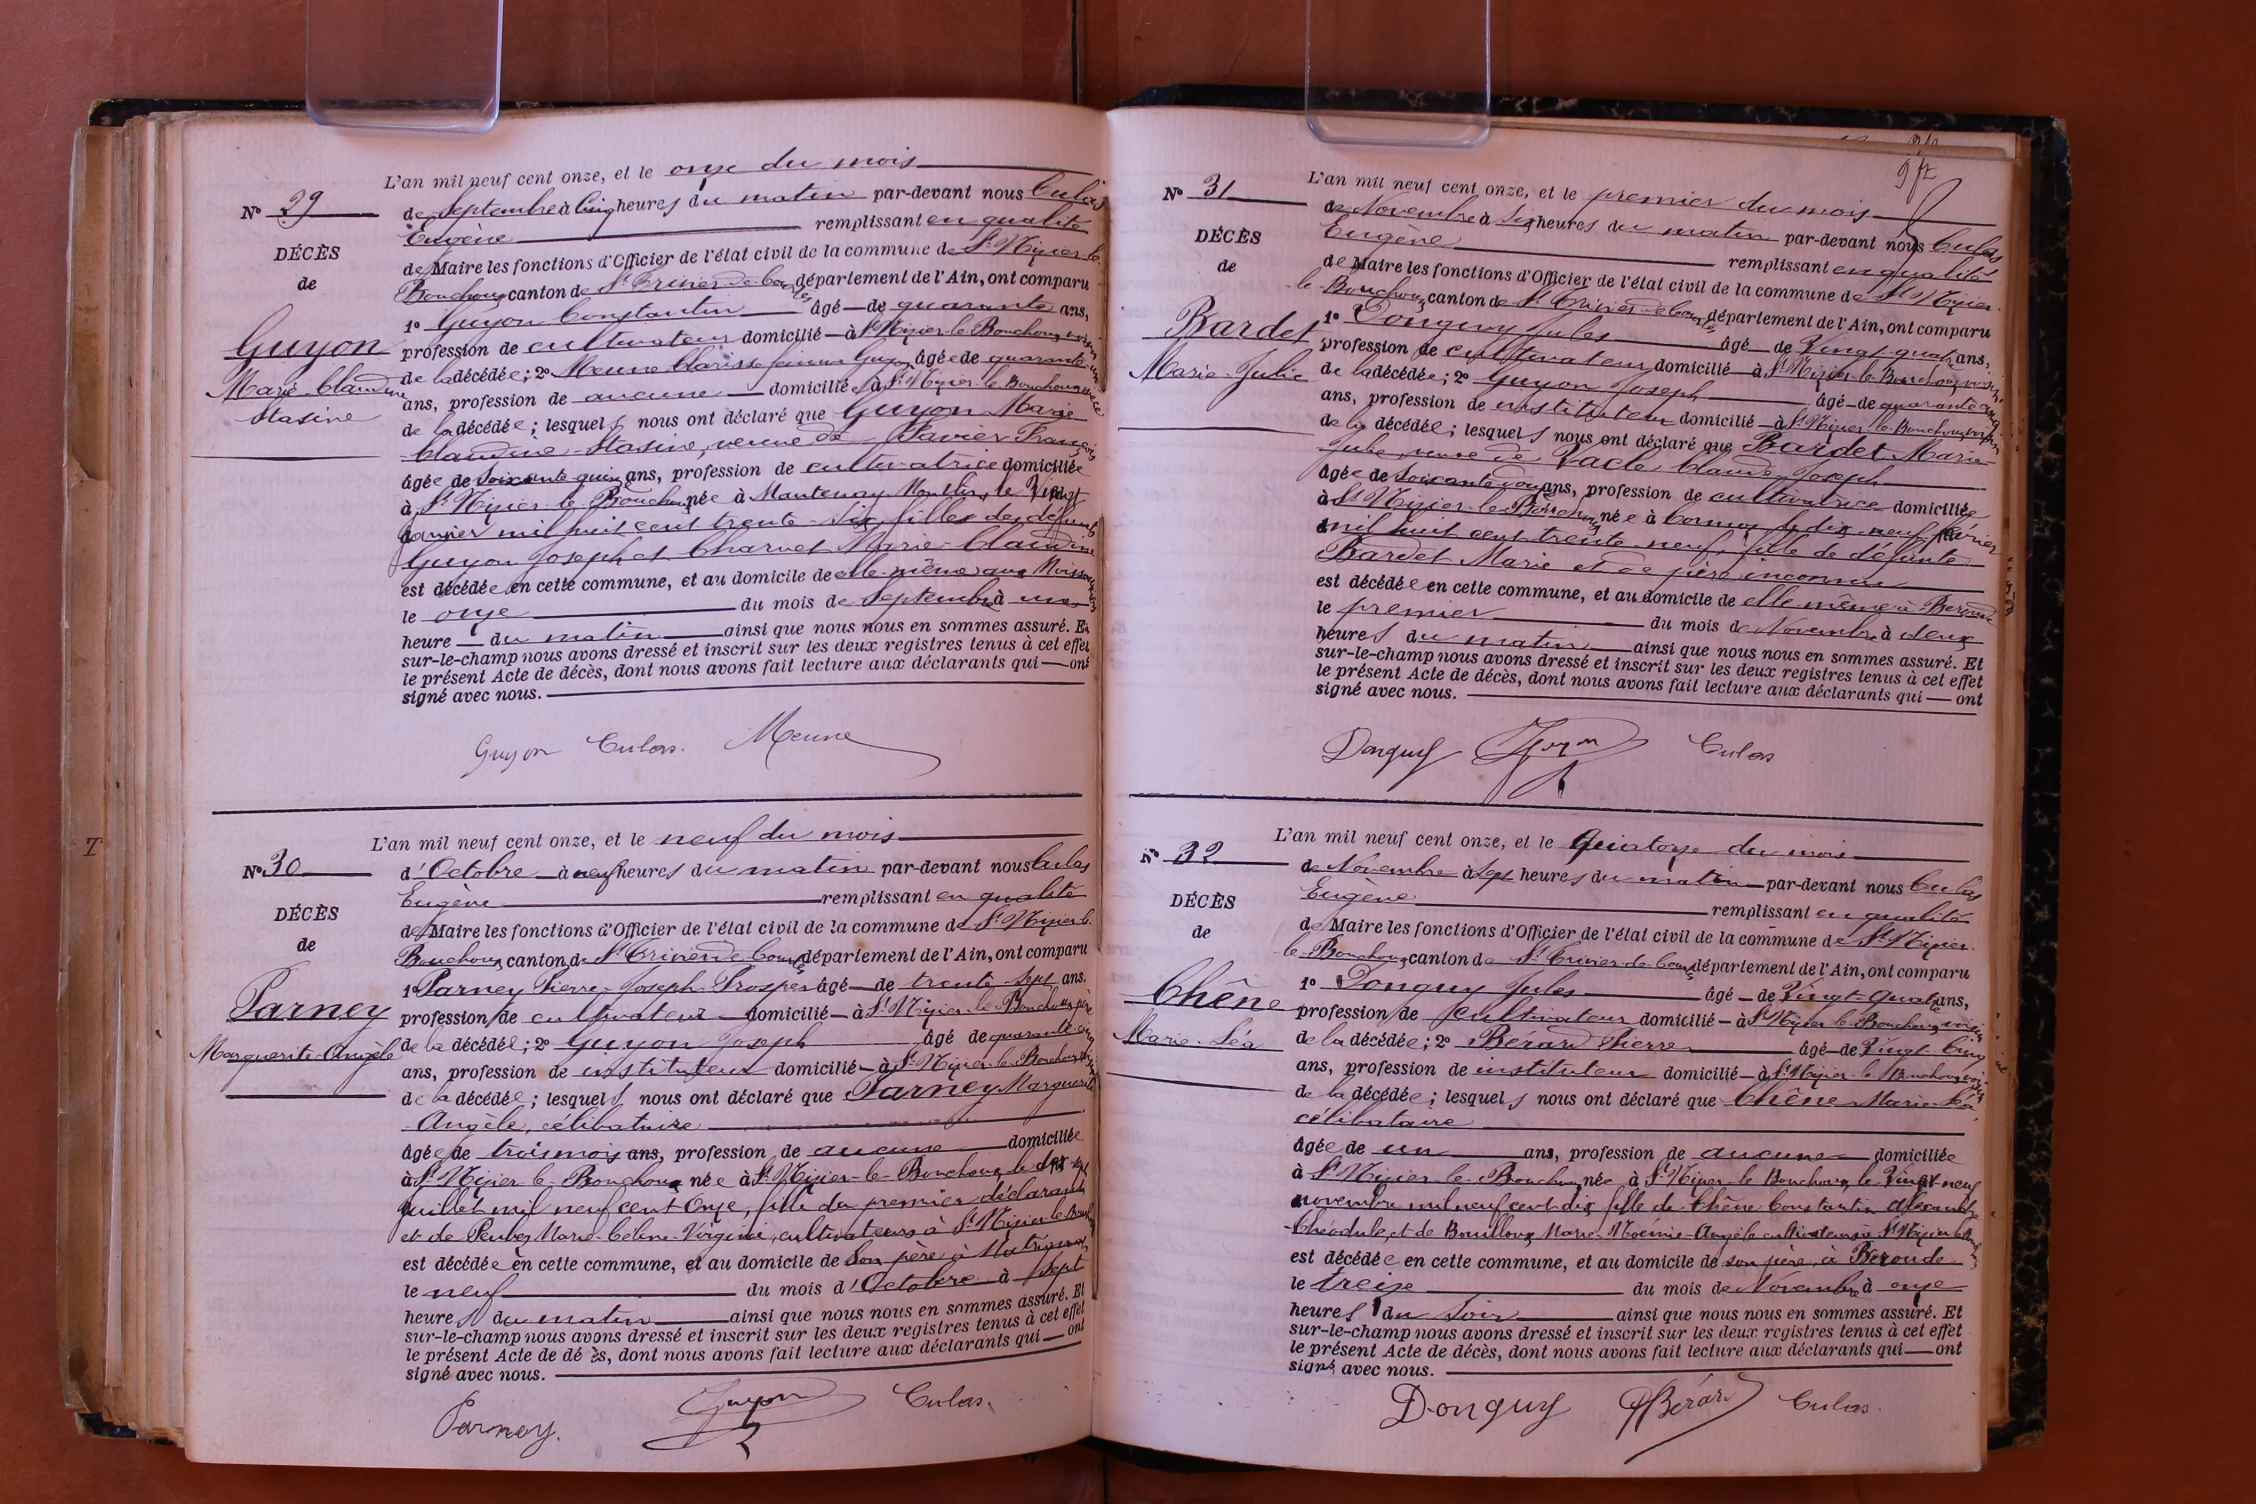 L'an mil neuf cent onze, et le onze du mois
Nº 29
de Septembre à cinq heures du matin par-devant nous Culas
Eugène remplissant en qualité
DÉCÈS
de Maire les fonctions d'Officier de l'état civil de la commune de St Nizier-le-
de
Bouchoux canton de St Trivier-de-Courtes département de l'Ain, ont comparu
1º Guyon Constantin âgé de quarante ans,
Guyon
profession de cultivateur domicilié à St Nizier-le-Bouchoux voisin
de la décédée; 2º Meune Clarisse femme Guyon âgée de quarante un
Marie Claudine
ans, profession de aucune domiciliée à St Nizier-le-Bouchoux nièce
Stasine
de la décédée; lesquels nous ont déclaré que Guyon Marie
Claudine Stasine, veuve de Pavier François
âgée de soixante quinze ans, profession de cultivatrice domiciliée
à St Nizier-le-Bouchoux née à Mantenay Montlin, le vingt
janvier mil huit cent trente-six, fille de défunts
Guyon Joseph et Charvet Marie-Claudine
est décédée en cette commune, et au domicile de elle-même aux
le onze du mois de Septembre à une
heure du matin ainsi que nous nous en sommes assuré. Et
sur-le-champ nous avons dressé et inscrit sur les deux registres tenus à cet effet
le présent Acte de décès, dont nous avons fait lecture aux déclarants qui ont
signé avec nous.
Guyon Culas. Meune
L'an mil neuf cent onze, et le neuf du mois
Nº 30
d'Octobre à neuf heures du matin par-devant nous Culas
Eugène remplissant en qualité
DÉCÈS
de Maire les fonctions d'Officier de l'état civil de la commune de St Nizier-le-
de
Bouchoux canton de St Trivier de Courtes département de l'Ain, ont comparu
1º Parney Pierre-Joseph-Prosper âgé de trente-sept ans.
Parney
profession de cultivateur domicilié à St Nizier-le-Bouchoux père
Marguerite-Angèle
de la décédée; 2º Guyon Joseph âgé de quarante cinq
ans, profession de instituteur domicilié à St Nizier-le-Bouchoux voisin
de la décédée; lesquels nous ont déclaré que Parney Marguerite
Angèle, célibataire
âgée de trois mois ans, profession de aucune domiciliée
à St Nizier-le-Bouchoux née à St Nizier-le-Bouchoux le dix-sept
juillet mil neuf cent onze, fille du premier déclarant
et de Marie-Céline-Virginie, cultivateurs à St Nizier-le-Bouchoux
est décédée en cette commune, et au domicile de son père à
le neuf du mois d'Octobre à sept
heures du matin ainsi que nous nous en sommes assuré. Et
sur-le-champ nous avons dressé et inscrit sur les deux registres tenus à cet effet
le présent Acte de décès, dont nous avons fait lecture aux déclarants qui ont
signé avec nous.
Parney. Guyon Culas.
L'an mil neuf cent onze, et le premier du mois
Nº 31
de Novembre à six heures du matin par-devant nous Culas
Eugène remplissant en qualité
DÉCÈS
de Maire les fonctions d'Officier de l'état civil de la commune de St Nizier-
de
le-Bouchoux canton de St Trivier-de-Courtes département de l'Ain, ont comparu
1º Donguy Jules âgé de vingt-quatre ans,
Bardet
profession de cultivateur domicilié à St Nizier-le-Bouchoux voisin
Marie-Julie
de la décédée; 2º Guyon Joseph âgé de quarante cinq
ans, profession de instituteur domicilié à St Nizier-le-Bouchoux voisin
de la décédée; lesquels nous ont déclaré que Bardet Marie-
Julie, veuve de Vacle Claude-Joseph
âgée de soixante douze ans, profession de cultivatrice domiciliée
à St Nizier-le-Bouchoux née à Cormoz le dix-neuf février
mil huit cent trente-neuf, fille de défunte
Bardet Marie et de père inconnu
est décédée en cette commune, et au domicile de elle-même à Beroude
le premier du mois de Novembre à deux
heures du matin ainsi que nous nous en sommes assuré. Et
sur-le-champ nous avons dressé et inscrit sur les deux registres tenus à cet effet
le présent Acte de décès, dont nous avons fait lecture aux déclarants qui ont
signé avec nous.
Donguy Guyon Culas
L'an mil neuf cent onze, et le quatorze du mois
Nº 32
de Novembre à sept heures du matin par-devant nous Culas
Eugène remplissant en qualité
DÉCÈS
de Maire les fonctions d'Officier de l'état civil de la commune de St Nizier-
de
le-Bouchoux canton de St Trivier-de-Courtes département de l'Ain, ont comparu
1º Donguy Jules âgé de vingt-quatre ans,
Chêne
profession de cultivateur domicilié à St Nizier-le-Bouchoux voisin
Marie-Léa
de la décédée; 2º Bérard Pierre âgé de vingt-cinq
ans, profession de instituteur domicilié à St Nizier-le-Bouchoux voisin
de la décédée; lesquels nous ont déclaré que Chêne Marie-Léa
célibataire
âgée de un ans, profession de aucune domiciliée
à St Nizier-le-Bouchoux née à St Nizier-le-Bouchoux, le vingt-neuf
novembre mil neuf cent dix, fille de Chêne Constantin Alexandre
Théodule, et de Bouilloux Marie-Noémie-Angèle cultivateurs à St Nizier-le-Bouchoux
est décédée en cette commune, et au domicile de son père, à Beroude
le treize du mois de Novembre à onze
heures du soir ainsi que nous nous en sommes assuré. Et
sur-le-champ nous avons dressé et inscrit sur les deux registres tenus à cet effet
le présent Acte de décès, dont nous avons fait lecture aux déclarants qui ont
signé avec nous.
Donguy Bérard Culas.